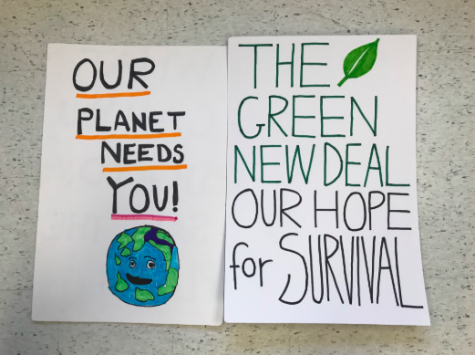 OUR
PLANET
NEEDS
YOU!
THE
GREEN
NEW DEAL
OUR HOPE
for SURVIVAL